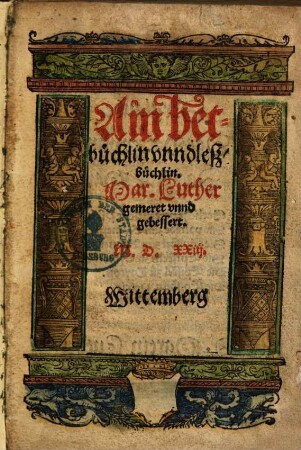 Ain bet-
büchlin vnnd leß/
büchlin.
Mar. Luther
gemeret vnnd
gebessert.
M. D. XXiij.
Wittemberg